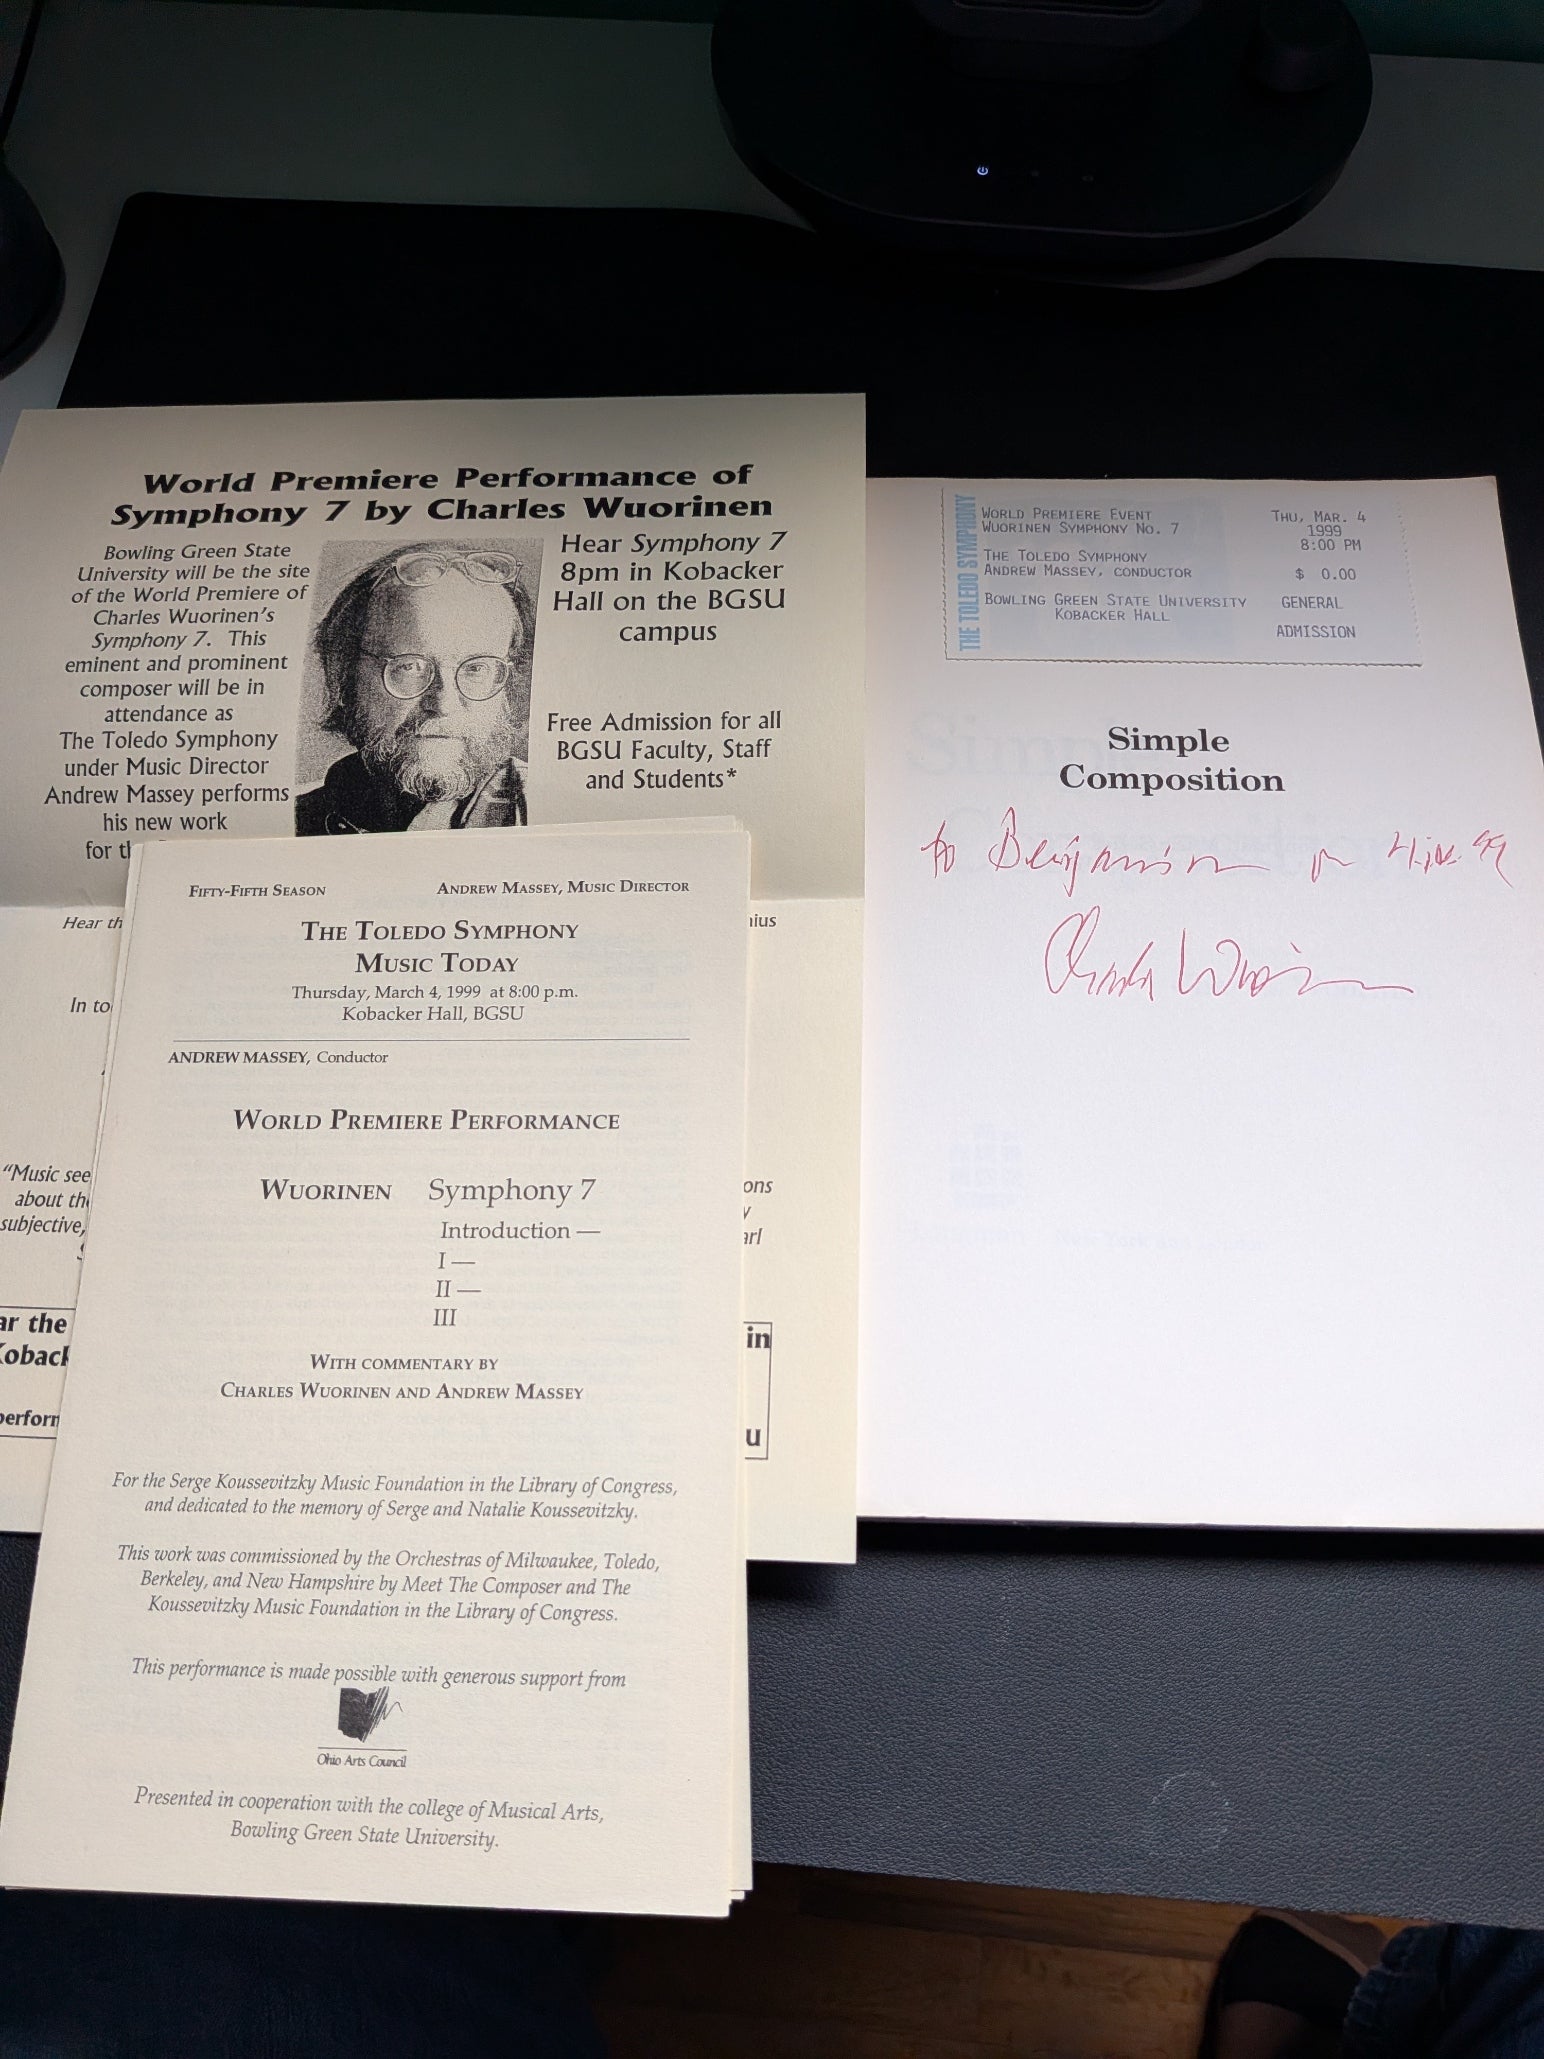 World Premiere Performance of
Symphony 7 by Charles Wuorinen
Bowling Green State
University will be the site
of the World Premiere of
Charles Wuorinen's
Symphony 7. This
eminent and prominent
composer will be in
attendance as
The Toledo Symphony
under Music Director
Andrew Massey performs
his new work
for th
Hear Symphony 7
8pm in Kobacker
Hall on the BGSU
campus
Free Admission for all
BGSU Faculty, Staff
and Students*
Hear th
In to
"Music see
about th
subjective,
ar the
Kobac
perfor
ius
ons
y
arl
in
u
FIFTY-FIFTH SEASON ANDREW MASSEY, MUSIC DIRECTOR
THE TOLEDO SYMPHONY
MUSIC TODAY
Thursday, March 4, 1999 at 8:00 p.m.
Kobacker Hall, BGSU
ANDREW MASSEY, Conductor
WORLD PREMIERE PERFORMANCE
WUORINEN Symphony 7
Introduction —
I —
II —
III
WITH COMMENTARY BY
CHARLES WUORINEN AND ANDREW MASSEY
For the Serge Koussevitzky Music Foundation in the Library of Congress,
and dedicated to the memory of Serge and Natalie Koussevitzky.
This work was commissioned by the Orchestras of Milwaukee, Toledo,
Berkeley, and New Hampshire by Meet The Composer and The
Koussevitzky Music Foundation in the Library of Congress.
This performance is made possible with generous support from
Ohio Arts Council
Presented in cooperation with the college of Musical Arts,
Bowling Green State University.
THE TOLEDO SYMPHONY
WORLD PREMIERE EVENT
WUORINEN SYMPHONY NO. 7
THE TOLEDO SYMPHONY
ANDREW MASSEY, CONDUCTOR
BOWLING GREEN STATE UNIVERSITY
KOBACKER HALL
THU, MAR. 4
1999
8:00 PM
$ 0.00
GENERAL
ADMISSION
Simple
Composition
to Benjamin 4.iii.99
Charles Wuorinen